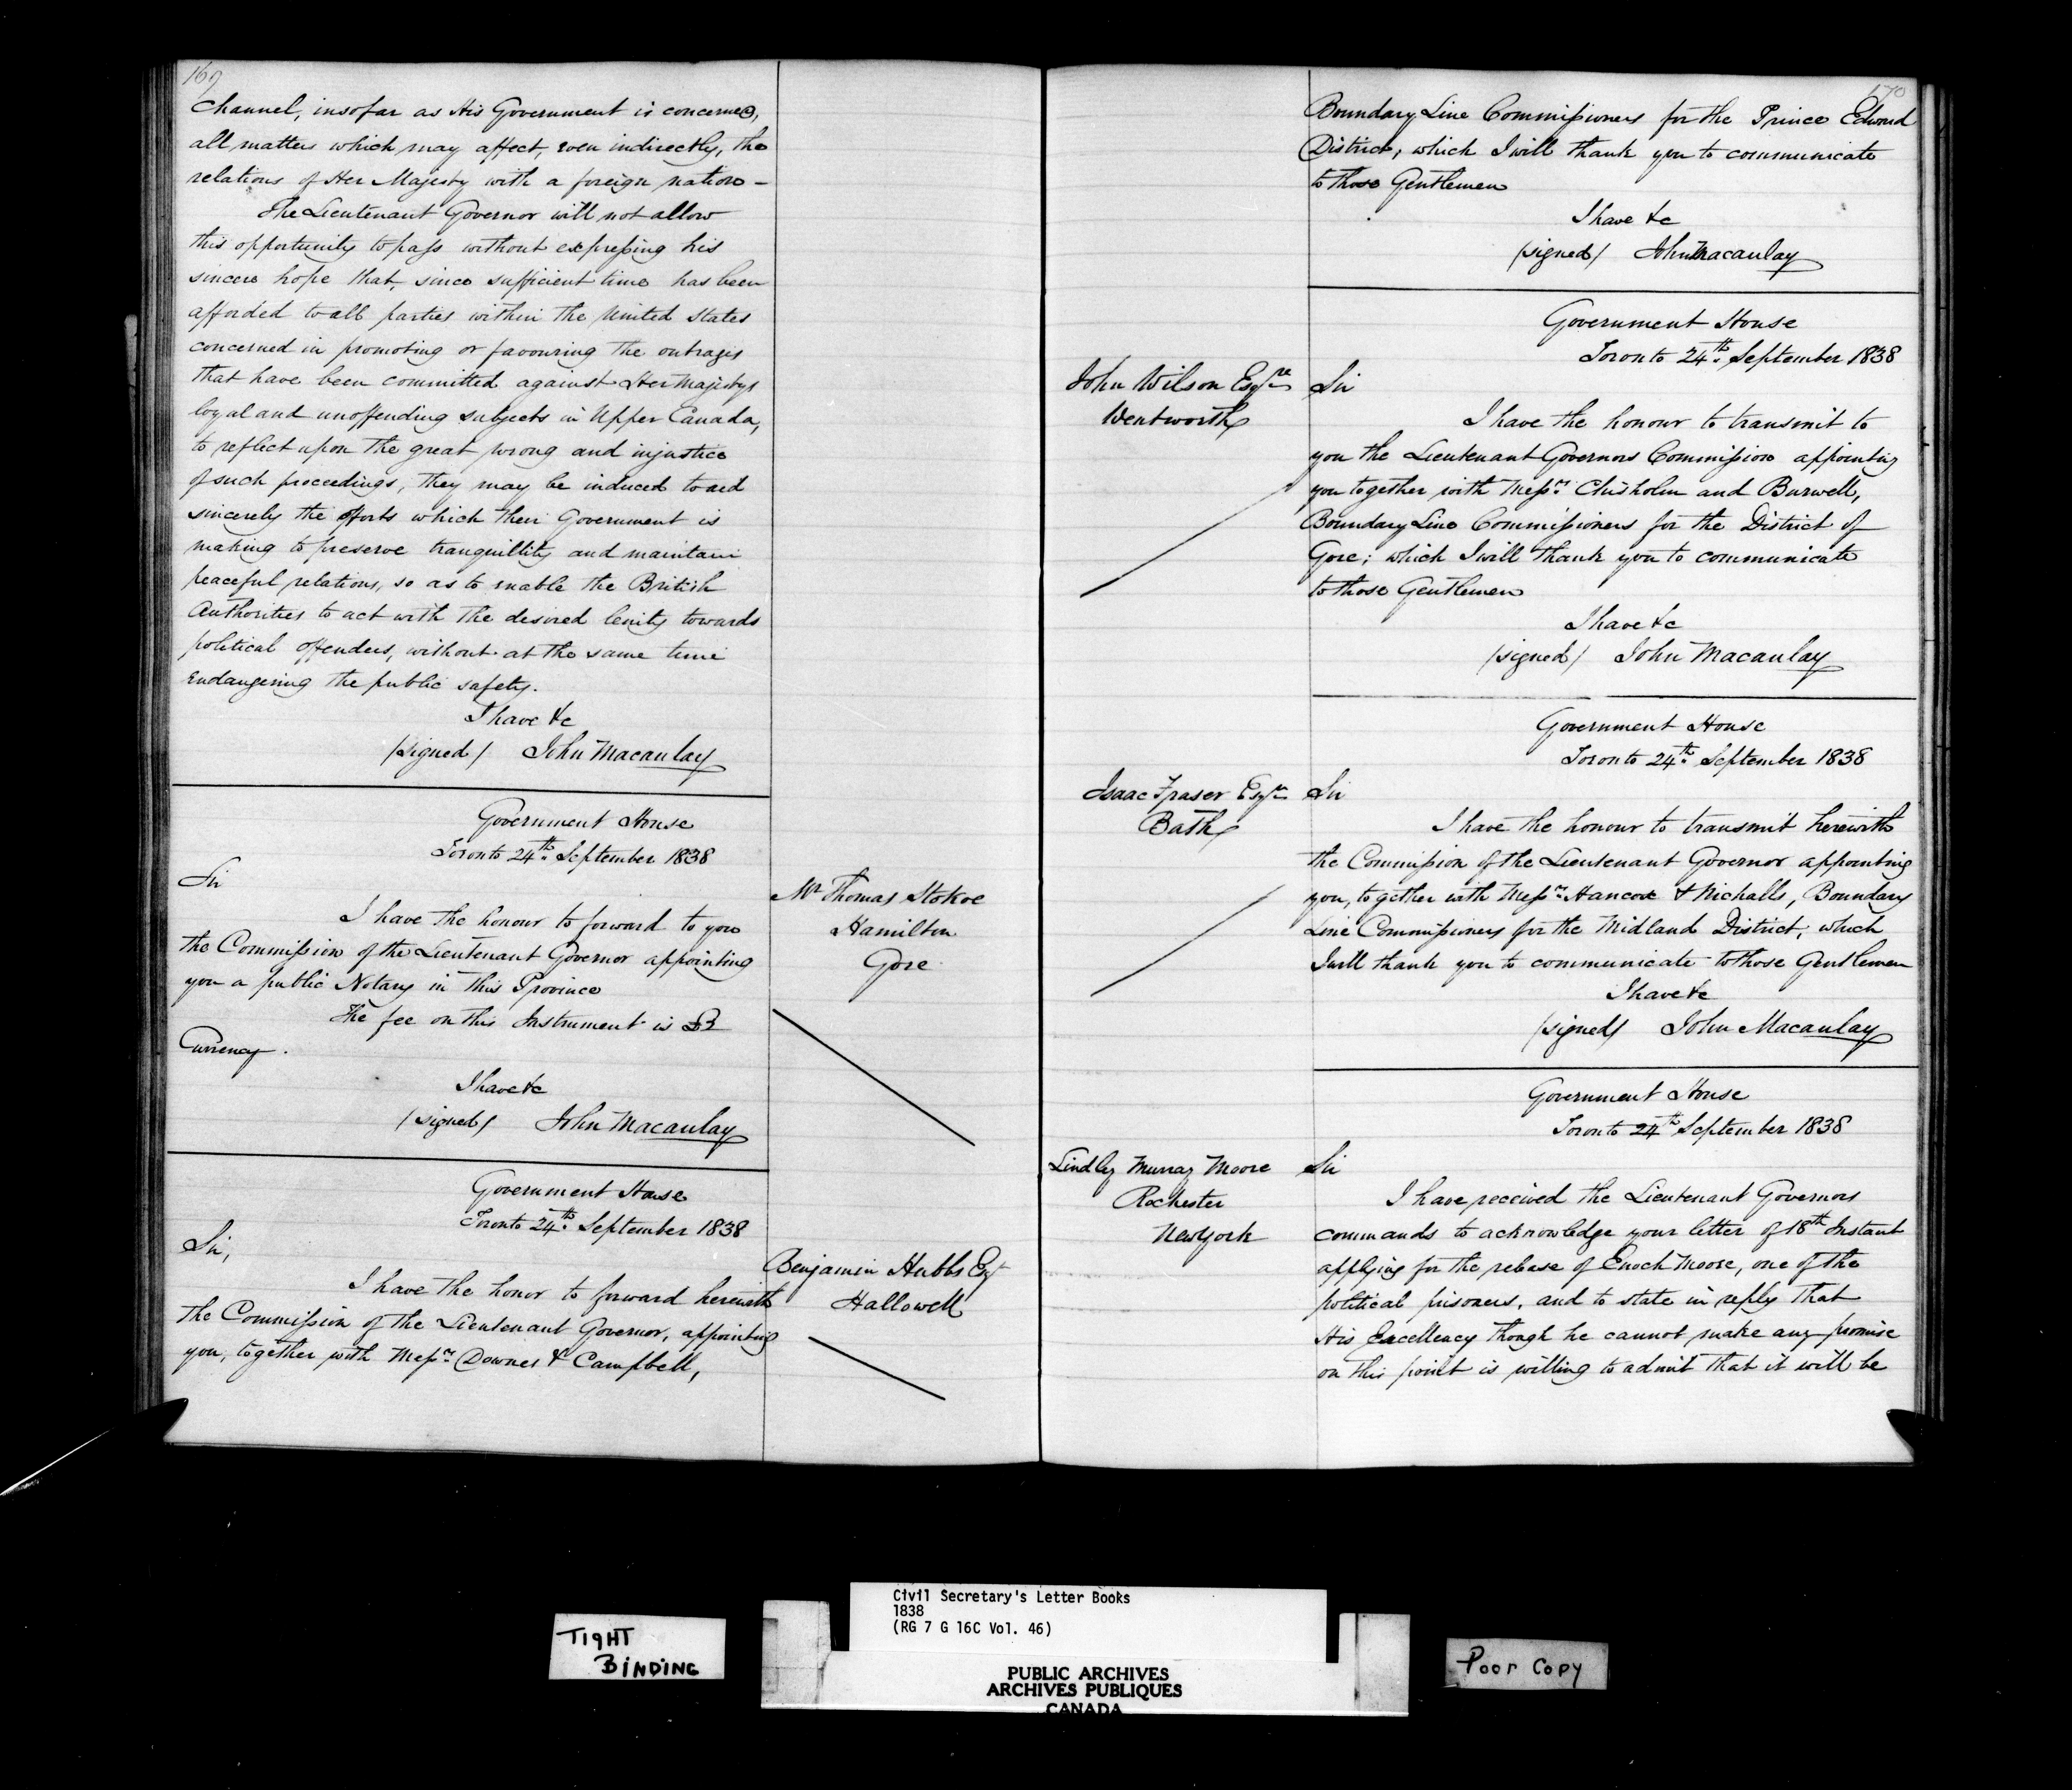 169
Channel, insofar as His Government is concerned,
all matters which may affect, even indirectly, the
relations of Her Majesty with a foreign nation -
The Lieutenant Governor will not allow
this opportunity to pass without expressing his
sincere hope that, since sufficient time has been
afforded to all parties within the United States
concerned in promoting or favouring the outrages
that have been committed against Her Majestys
loyal and unoffending subjects in Upper Canada,
to reflect upon the great wrong and injustice
of such proceedings, they may be induced to aid
sincerely the efforts which their Government is
making to preserve tranquillity and maintain
peaceful relations, so as to enable the British
Authorities to act with the desired lenity towards
political offenders, without at the same time
endangering the public safety.
I have &c
/signed/ John Macaulay
Government House
Toronto 24th September 1838
Mr Thomas Stokoe
Hamilton
Gore
Sir
I have the honour to forward to you
the Commission of the Lieutenant Governor appointing
you a public Notary in this Province
The fee on this Instrument is
Currency.
I have &c
/signed/ John Macaulay
Government House
Toronto 24th September 1838
Benjamin Hubbs Esqr
Hallowell
Sir,
I have the honor to forward herewith
the Commission of the Lieutenant Governor, appointing
you, together with Messrs Downes & Campbell,
170
Boundary Line Commissioners for the Prince Edward
District, which I will thank you to communicate
to those Gentlemen
I have &c
/signed/ John Macaulay
Government House
Toronto 24th September 1838
John Wilson Esqre
Wentworth
Sir
I have the honour to transmit to
you the Lieutenant Governors Commission appointing
you together with Messrs Chisholm and Burwell,
Boundary Line Commissioners for the District of
Gore; which I will thank you to communicate
to those Gentlemen
I have &c
/signed/ John Macaulay
Government House
Toronto 24th September 1838
Isaac Fraser Esqre
Bath
Sir
I have the honour to transmit herewith
the Commission of the Lieutenant Governor appointing
you, together with Messrs Hancox & Nickalls, Boundary
Line Commissioners for the Midland District; which
I will thank you to communicate to those Gentlemen
I have &c
/signed/ John Macaulay
Government House
Toronto 24th September 1838
Lindley Murray Moore
Rochester
New York
Sir
I have received the Lieutenant Governors
commands to acknowledge your letter of 18th Instant
applying for the release of Enoch Moore, one of the
political prisoners, and to state in reply that
His Excellency though he cannot make any promise
on this point is willing to admit that it will be
Civil Secretary's Letter Books
1838
(RG 7 G 16C Vol. 46)
TIGHT
BINDING
PUBLIC ARCHIVES
ARCHIVES PUBLIQUES
CANADA
Poor Copy